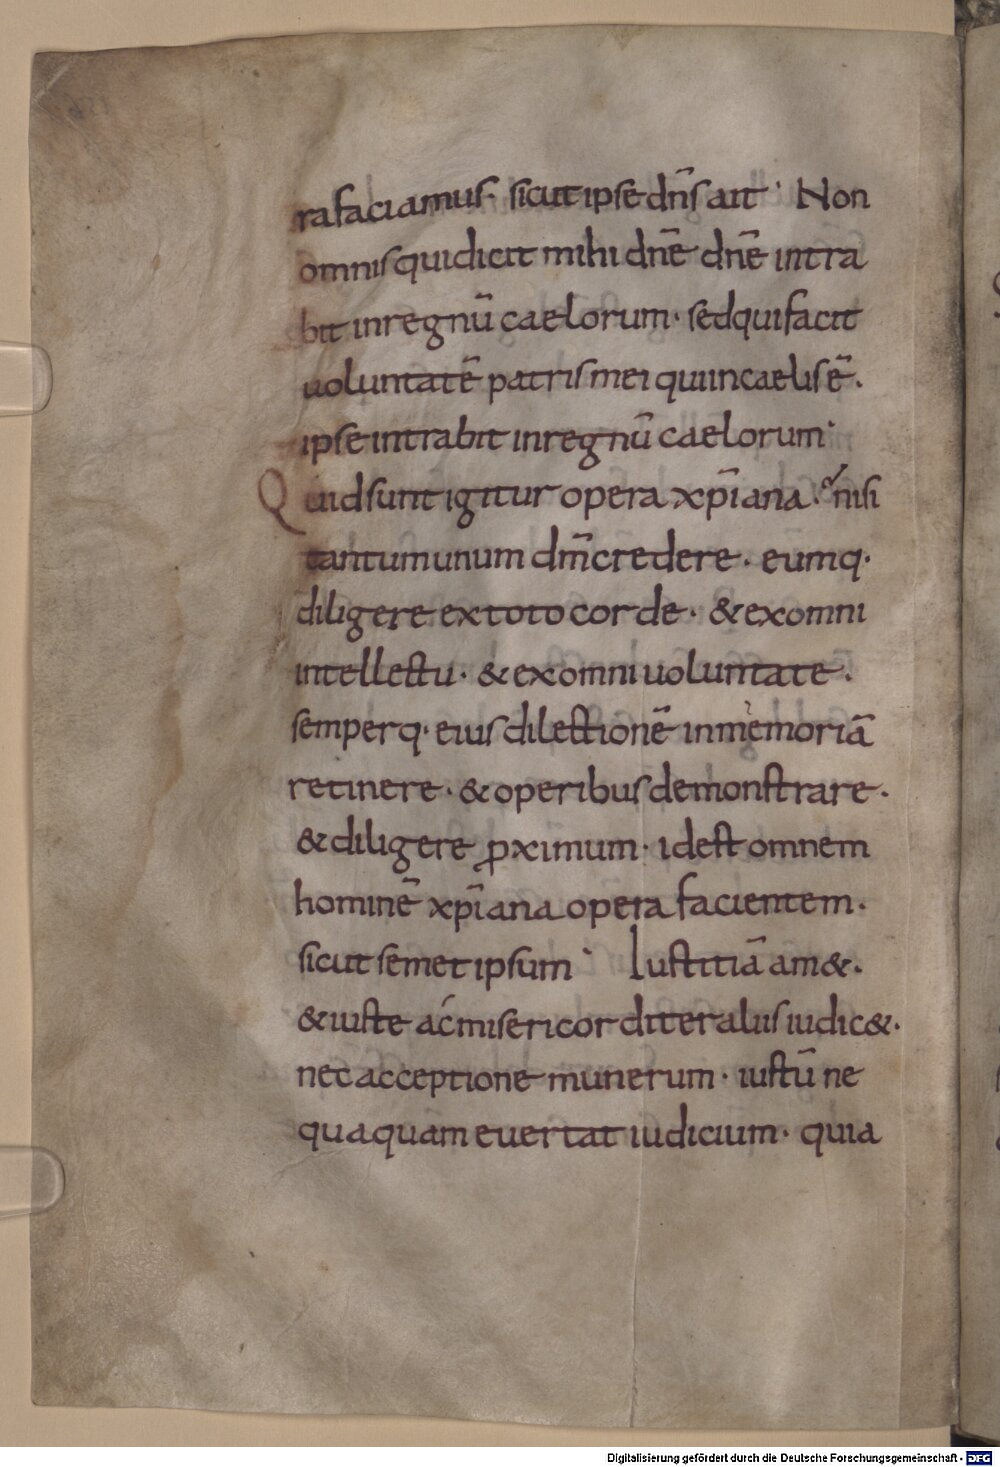 ra faciamus· sicut ipse dn̄s ait· Non
omnis qui dicit mihi dnē dnē intra
bit in regnū caelorum· sed qui facit
uoluntatē patris mei qui in caelis ē·
ipse intrabit in regnū caelorum·
Quid sunt igitur opera xp̄iana· nisi
tantum unum dm̄ credere· eumq·
diligere ex toto corde· & ex omni
intellectu· & ex omni uoluntate·
semperq· eius dilectionē in memoriā
retinere· & operibus demonstrare·
& diligere proximum· id est omnem
hominē xp̄iana opera facientem·
sicut semet ipsum· Iustitiā am&·
& iuste ac misericorditer aliis iudic&·
nec acceptione munerum· iustū ne
quaquam euertat iudicium· quia
Digitalisierung gefördert durch die Deutsche Forschungsgemeinschaft - DFG